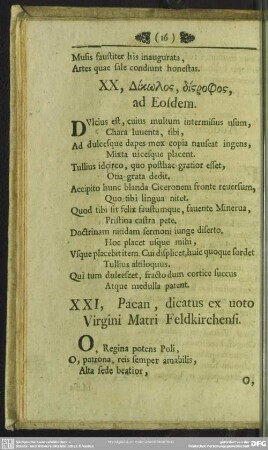 ( 16 )
Musis faustiter his inaugurata,
Artes quae sale condiunt honestas.
XX, Δίκωλος, δίςροφος,
ad Eosdem.
DVlcius est, cuius multum intermisius usum,
Chara Iuuenta, tibi,
Ad dulcesque dapes mox copia nauseat ingens,
Mixta uicesque placent.
Tullius idcirco, quo posthac gratior esset,
Oria grata dedit.
Accipito hunc blanda Ciceronem fronte reuersum,
Quo tibi lingua nitet.
Quod tibi sit felix faustumque, fauente Minerua,
Pristina castra pete.
Doctrinam nitidam sermoni iunge diserto.
Hoc placet usque mihi,
Vsque placebit item. Cui displicet, huic quoque sordet
Tullius altiloquus.
Qui tum dulcescet, fracto dum cortice succus
Atque medulla patent.
XXI, Paean, dicatus ex uoto
Virgini Matri Feldkirchensi.
O, Regina potens Poli,
O, patrona, reis semper amabilis,
Alta sede beatior,
O,